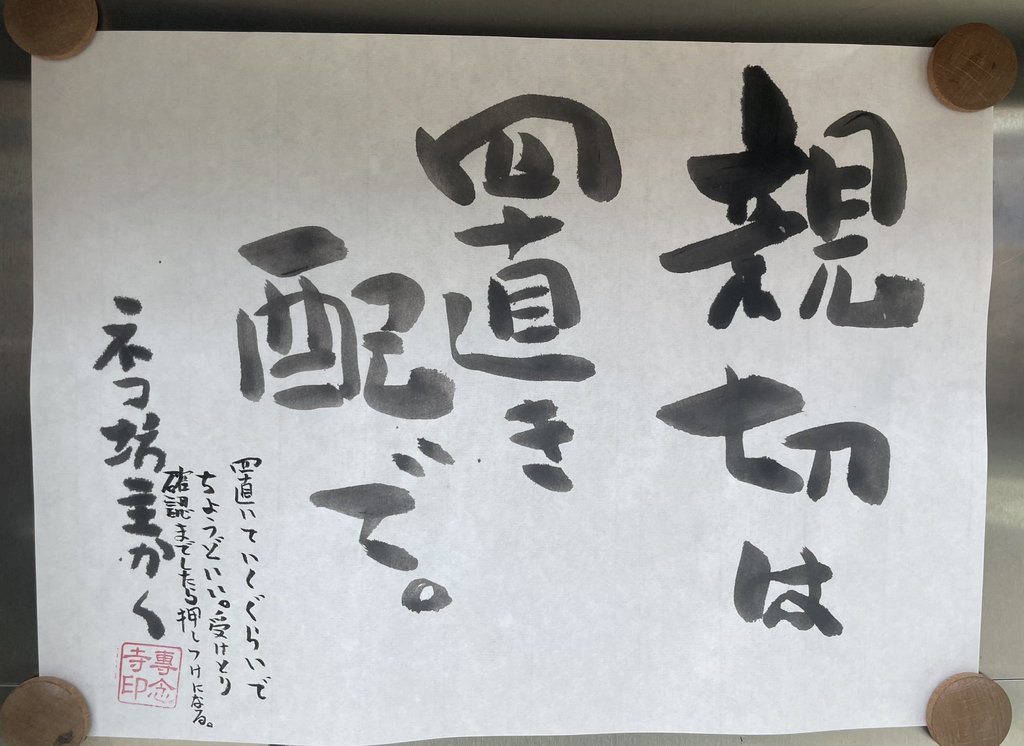 親切は
置き
配で。
置いていくぐらいで
ちょうどいい。受けとり
確認までしたら押しつけになる。
ネコ坊主かく
專念
寺印